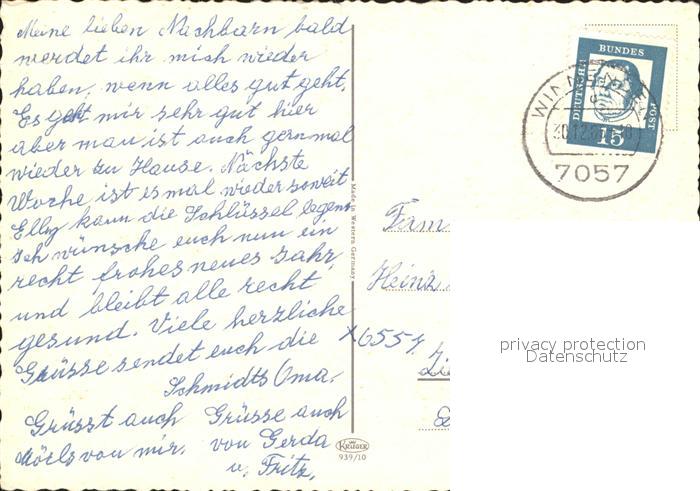 Meine lieben Nachbarn bald
werdet ihr mich wieder
haben, wenn alles gut geht.
Es geht mir sehr gut hier
aber man ist auch gern mal
wieder zu Hause. Nächste
Woche ist es mal wieder soweit
Elly kann die Schlüssel legen
Ich wünsche euch nun ein
recht frohes neues Jahr,
und bleibt alle recht
gesund. Viele herzliche
Grüsse sendet euch die
Schmidts Oma.
Grüsst auch
von mir.
Grüsse auch
von Gerda
u. Fritz.
Made in Western Germany
KRÜGER
939/10
DEUTSCHE
BUNDES
POST
15
7057
Fam
Heinz
X6554
privacy protection
Datenschutz